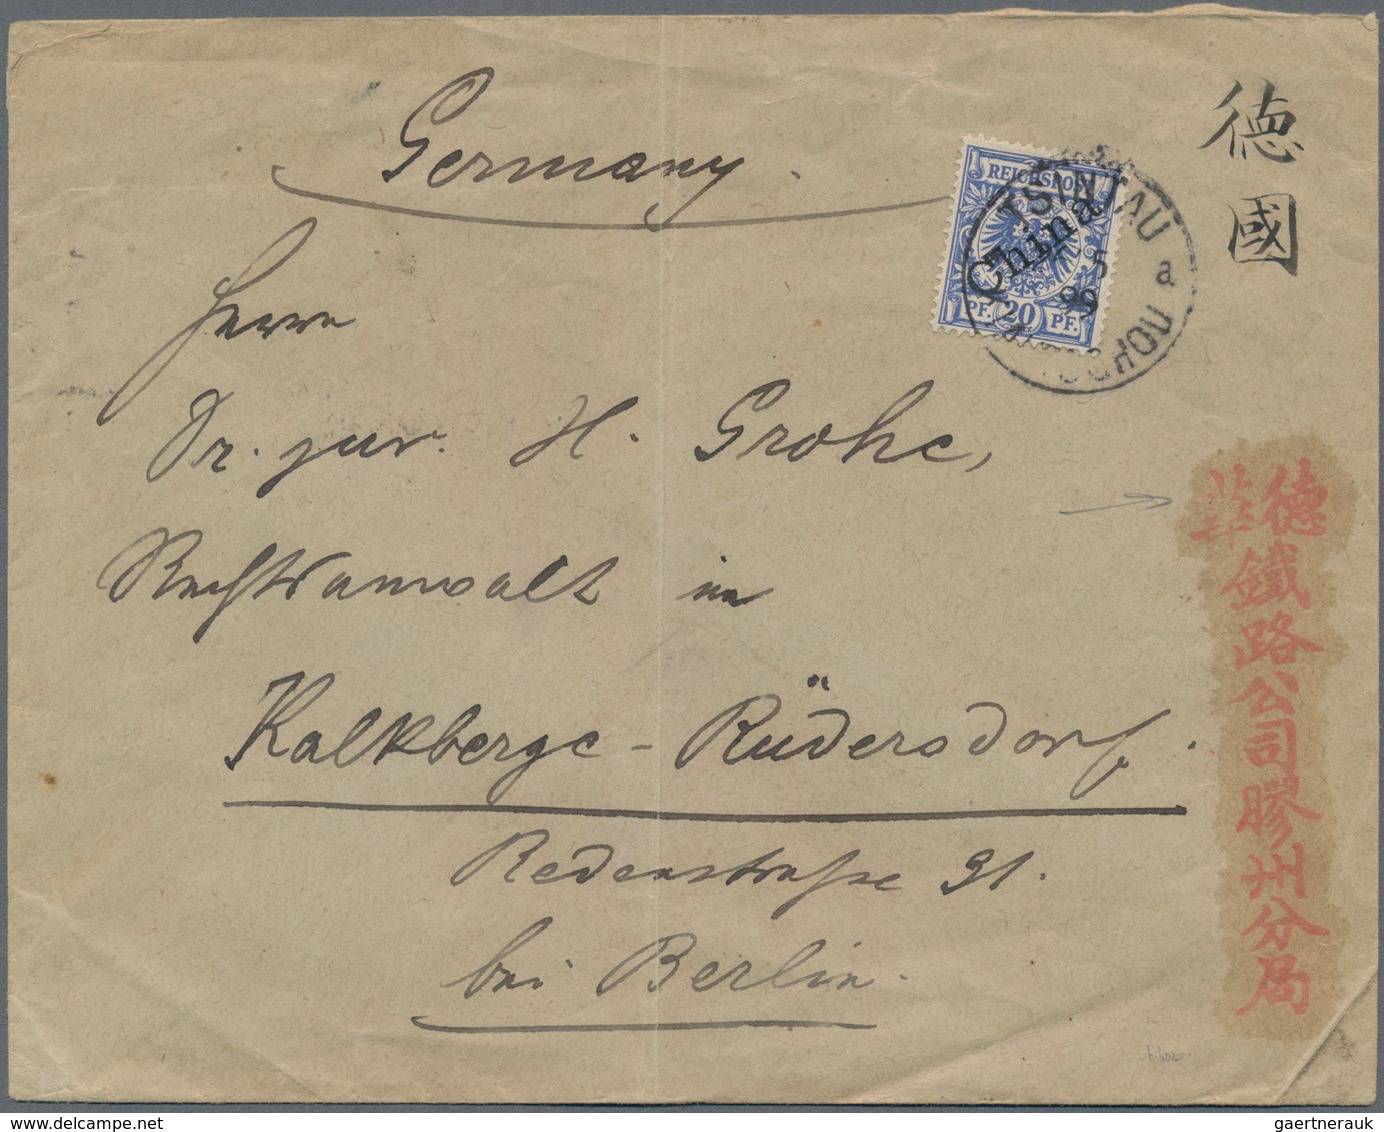 Germany.
德國
REICHSPOST
China
PF. 20 PF.
TSINTAU
a
5
99
Herrn
Dr. jur. H. Grohe,
Rechtsanwalt in
Kalkberge-Rüdersdorf.
Redenstraße 31.
bei Berlin.
德華
鐵路公司膠州分局
delcampe.net
gaertnerauk